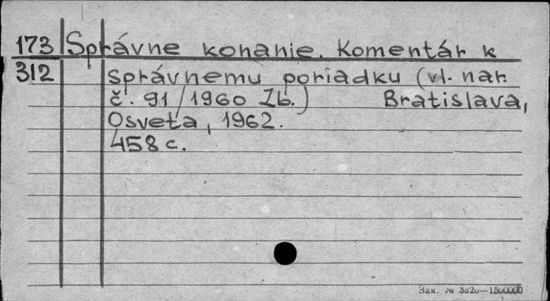 173 Správne konanie. Komentár k
312 správnemu poriadku (vl. nar.
č. 91/1960 Zb.) Bratislava,
Osveta, 1962.
458 c.
Зак. № 3620—1500000